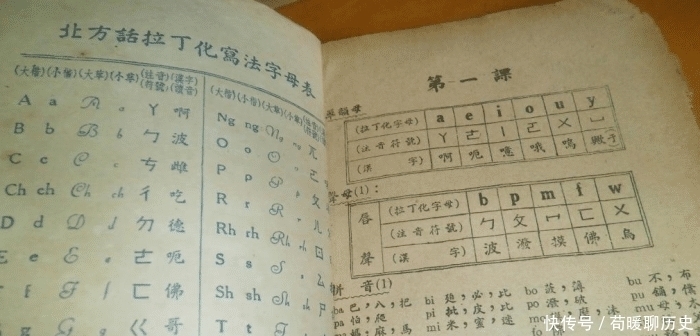 北方話拉丁化寫法字母表
(大楷)(小楷)(大草)(小草)(注音符號)(漢字讀音)
A a A a ㄚ 啊
B b B b ㄅ 波
C c C c ㄘ 雌
Ch ch Ch ch ㄔ 吃
D d D d ㄉ 德
E e E e ㄜ 呃
F f F f ㄈ 佛
ㄍ 哥
(大楷)(小楷)(大草)(小草)
Ng ng Ng ng ㄫ
O o O o ㄛ
P p P p ㄆ
R r R r ㄦ
Rh rh Rh rh ㄖ
S s S s ㄙ
Sh sh Sh sh ㄕ
T t
第一課
單韻母
(拉丁化字母) a e i o u y
(注音符號) ㄚ ㄜ ㄧ ㄛ ㄨ ㄩ
(漢字) 啊 呃 噫 哦 嗚
聲母(1):
唇聲
(拉丁化字母) b p m f w
(注音符號) ㄅ ㄆ ㄇ ㄈ ㄨ
(漢字) 波 潑 摸 佛 烏
拼音(1)
ba 巴,八,把 bi 逼,必,比 bo 菠,薄 bu 不,布
pa 怕,爬 pi 批,皮,比 po 潑,破 pu 鋪,
ma 麻,馬 mi 米,蜜,迷 mu 母,
快传号/苟暖聊历史